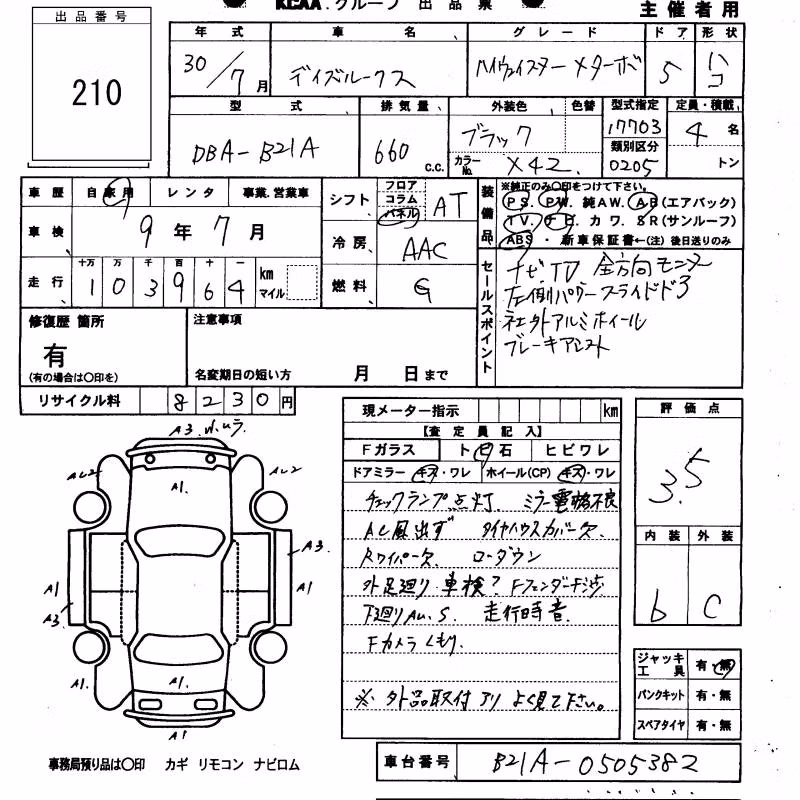 KCAA.グループ 出品票
主催者用
出品番号
210
年式 車名 グレード ドア 形状
30/7月 デイズルークス ハイウェイスター メターボ 5 ハコ
型式 排気量 外装色 色替 型式指定 定員・積載
DBA-B21A 660 c.c. ブラック 17703 4名
カラーNo. X42. 類別区分 0205 トン
車歴 自家用 レンタ 事業.営業車
車検 9年7月
走行 十万 万 千 百 十 一
1 0 3 9 6 4 km マイル
シフト フロア コラム パネル AT
冷房 AAC
燃料 G
装備品
※純正のみ○印をつけて下さい。
PS. PW. 純AW. AB(エアバック)
TV. ナビ. カワ. SR(サンルーフ)
ABS・新車保証書←(注)後日送りのみ
セールスポイント
ナビ.TV 全方向モニター
左側パワースライドドア
社外アルミホイール
ブレーキアシスト
修復歴 箇所
有
(有の場合は○印を)
注意事項
名変期日の短い方 月 日まで
リサイクル料 8230円
現メーター指示 km
【査定員記入】
Fガラス ト ビ 石 ヒビワレ
ドアミラー キズ・ワレ ホイール(CP) キズ・ワレ
チェックランプ点灯. ミラー電格不良
AC風出ず タイヤハウスカバー欠.
Rワイパー欠. ローダウン
外足廻り 車検? Fフェンダー干渉
下廻りAu.S. 走行時音.
Fカメラくもり.
※ 外品取付アリ よく見て下さい。
評価点
3.5
内装 外装
b C
ジャッキ 工具 有・無
パンクキット 有・無
スペアタイヤ 有・無
A3
AL2 A1. AL2
A3.
A1 A1
A3.
A1. A1. A1.
A1
事務局預り品は○印 カギ リモコン ナビロム
車台番号 B21A-0505382